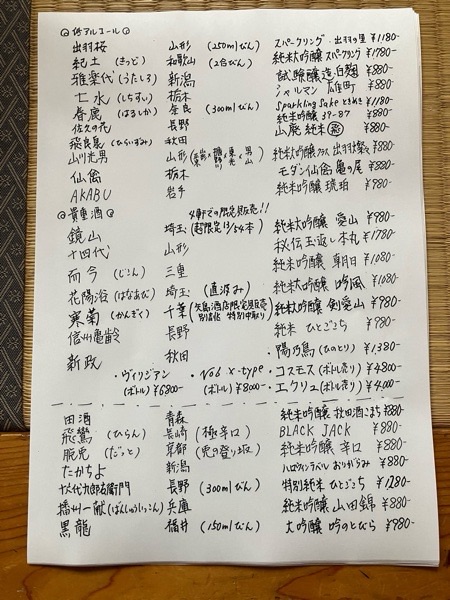 ◎低アルコール◎
出羽桜 山形 (250mlびん) スパークリング 出羽の里 ¥1180-
紀土 (きっど) 和歌山 (2合びん) 純米大吟醸 スパークリング ¥1780-
雅楽代 (うたしろ) 新潟 試験醸造 白麹 ¥880-
七水 (しちすい) 栃木 シャルマン 雄町 ¥880-
春鹿 (はるしか) 奈良 (300mlびん) Sparkling Sake ときめき ¥1180-
佐久の花 長野 純米吟醸 39-87 ¥880-
飛良泉 (ひらいずみ) 秋田 山廃 純米 ¥880-
山川光男 山形 純米大吟醸 プラス 出羽燦々 ¥880-
仙禽 栃木 モダン仙禽 亀の尾 ¥880-
AKABU 岩手 純米吟醸 琥珀 ¥980-
◎貴重酒◎
鏡山 埼玉 4軒での限定販売!! 純米大吟醸 愛山 ¥980-
十四代 山形 秘伝玉返し 本丸 ¥1780-
而今 (じこん) 三重 純米吟醸 朝日 ¥1080-
花陽浴 (はなあび) 埼玉 (直汲み) 純米大吟醸 吟風 ¥1080-
寒菊 (かんぎく) 千葉 (矢島酒店限定販売 別誂 特別中取り) 純米大吟醸 剣愛山 ¥980-
信州亀齢 長野 純米 ひとごこち ¥980-
新政 秋田 ・陽乃鳥 (ひのとり) ¥1,380-
・ヴィリジアン ・No6 X-type ・コスモス (ボトル売り) ¥4800-
(ボトル) ¥6800- (ボトル) ¥8,000- ・エクリュ (ボトル売り) ¥4,000-
田酒 青森 純米吟醸 秋田酒こまち ¥880-
飛鸞 (ひらん) 長崎 (極辛口) BLACK JACK ¥880-
脱兎 (だっと) 京都 (兎の登り坂) 純米吟醸 辛口 ¥880-
たかちよ 新潟 ハロウィンラベル おりがらみ ¥880-
十六代九郎右衛門 長野 (300mlびん) 特別純米 ひとごこち ¥1280-
播州一献 (ばんしゅういっこん) 兵庫 純米吟醸 山田錦 ¥880-
黒龍 福井 (150mlびん) 大吟醸 吟のとびら ¥980-